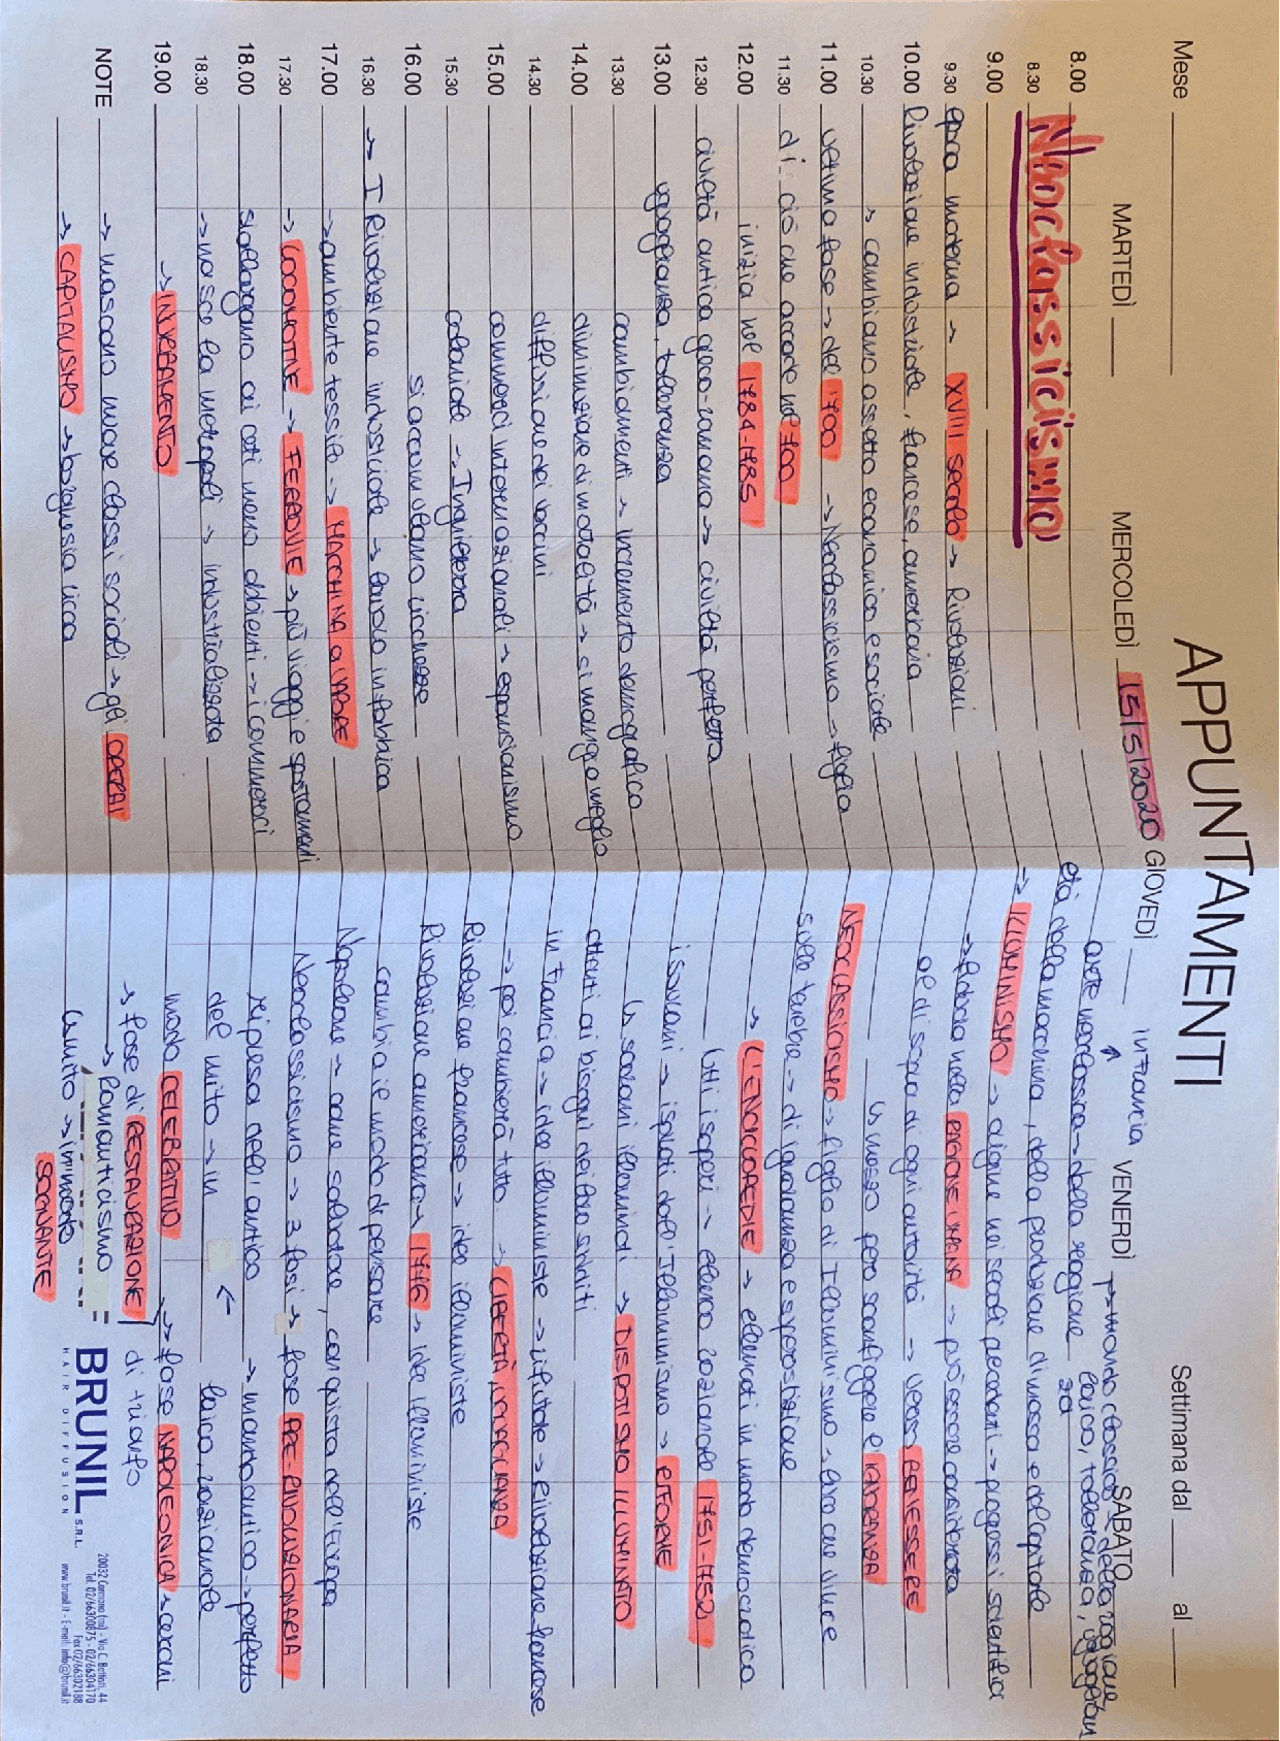 APPUNTAMENTI
Mese
Settimana dal al
MARTEDÌ MERCOLEDÌ 15/5/2020 GIOVEDÌ VENERDÌ SABATO
8.00
8.30 Neoclassicismo
9.00
9.30 epoca moderna → XVIII secolo → Rivoluzioni
10.00 Rivoluzione industriale, francese, americana
10.30 ↳ cambiano assetto economico e sociale
11.00 ultima fase → del '700 → Neoclassicismo → figlio
11.30 di ciò che accade nel '700
12.00 inizia nel 1784-1785
12.30 civiltà antica greco-romana → civiltà perfetta
13.00 uguaglianza, tolleranza
13.30 cambiamenti → incremento demografico
14.00 diminuzione di mortalità → si mangia meglio
14.30 diffusione dei vaccini
15.00 commerci internazionali → espansionismo
15.30 coloniale → Inghilterra
16.00 si accumulano ricchezze
16.30 → I Rivoluzione industriale → lavoro in fabbrica
17.00 → ambiente tessile → MACCHINA A VAPORE
17.30 → LOCOMOTIVE → FERROVIE → più viaggi e spostamenti
18.00 si allargano ai ceti meno abbienti → i commerci
18.30 → nasce la metropoli → industrializzata
19.00 → INURBAMENTO
NOTE → nascono nuove classi sociali → gli OPERAI
→ CAPITALISMO → borghesia ricca
in Francia
→ mondo classico → della ragione,
laico, tolleranza,
arte neoclassica → della ragione
età della macchina, della produzione di massa e del capitale
→ ILLUMINISMO → origine nei secoli precedenti → progressi scientifici
→ fiducia nella RAGIONE UMANA → può essere considerata
al di sopra di ogni autorità → verso BENESSERE
↳ mezzo per sconfiggere l'IGNORANZA
NEOCLASSICISMO → figlio di Illuminismo → era che diluce
sulle tenebre → di ignoranza e superstizione
→ L'ENCICLOPEDIE → elencati in modo democratico
tutti i saperi → elenco razionale 1751-1752
i sovrani → ispirati dall'Illuminismo → RIFORME
↳ sovrani illuminati → DISPOTISMO ILLUMINATO
attenti ai bisogni dei loro sudditi
in Francia → idee illuministe → rifiutate → Rivoluzione francese
→ poi cambierà tutto → LIBERTÀ, UGUAGLIANZA
Rivoluzione francese → idee illuministe
Rivoluzione americana → 1776 → idee illuministe
cambia il modo di pensare
Napoleone → come soldato, conquista dell'Europa
Neoclassicismo → 3 fasi → fase PRE-RIVOLUZIONARIA
ripresa dell'antico → mondo antico → perfetto
del mito → in laico, razionale
modo CELEBRATIVO → fase NAPOLEONICA →
→ fase di RESTAURAZIONE di trionfo
→ Romanticismo
↳ mito → mondo
SOGNANTE
BRUNIL S.R.L.
HAIR DIFFUSION
20032 Cormano (MI) - Via C. Battisti, 44
Tel. 02/66300875 - 02/66304170
Fax 02/66302188
www.brunil.it - E-mail: info@brunil.it